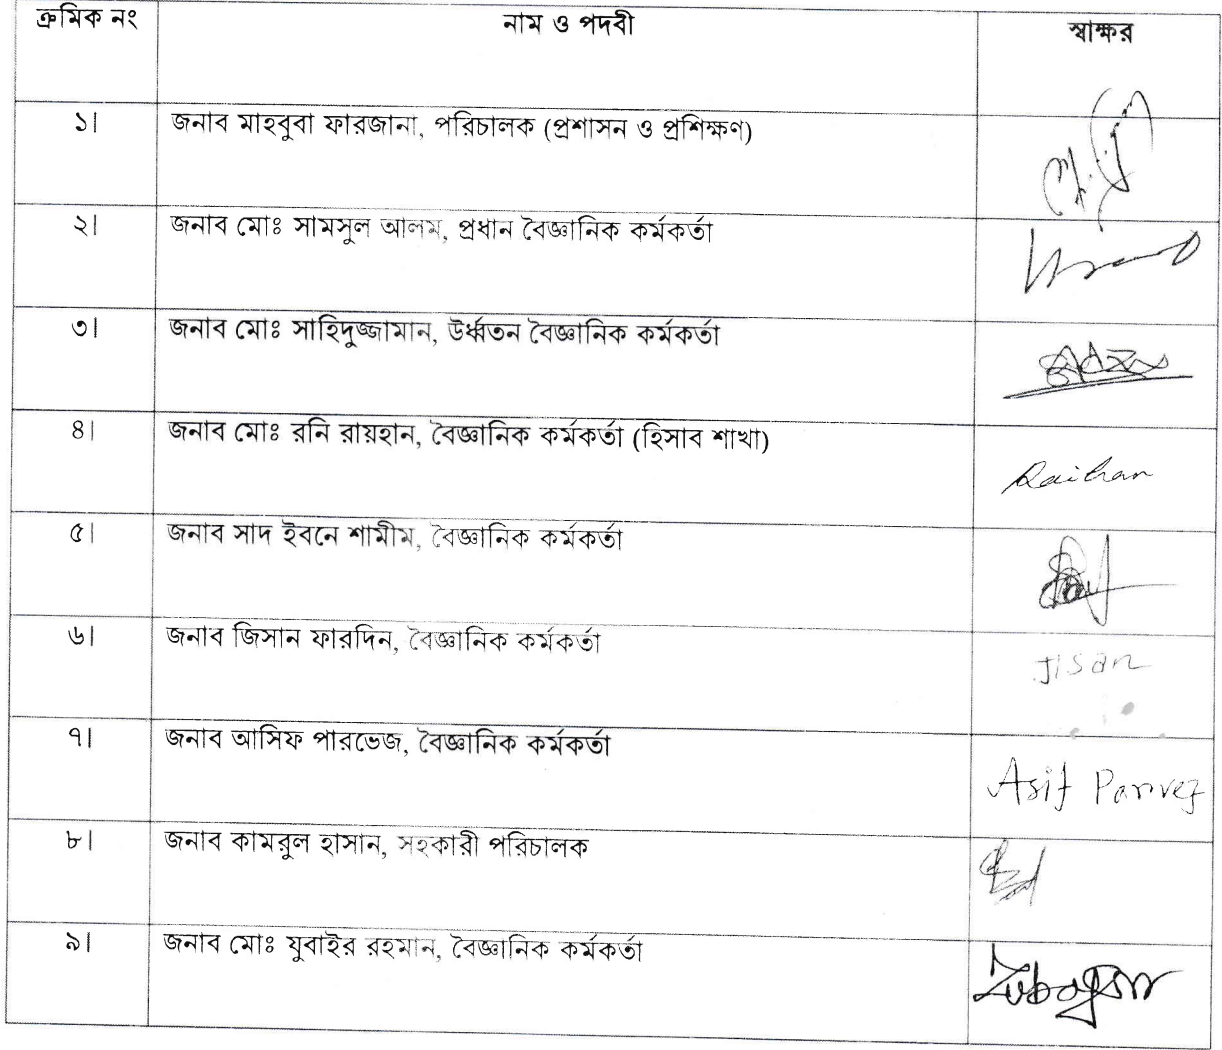 ক্রমিক নং নাম ও পদবী স্বাক্ষর
১। জনাব মাহবুবা ফারজানা, পরিচালক (প্রশাসন ও প্রশিক্ষণ)
২। জনাব মোঃ সামসুল আলম, প্রধান বৈজ্ঞানিক কর্মকর্তা
৩। জনাব মোঃ সাহিদুজ্জামান, উর্ধ্বতন বৈজ্ঞানিক কর্মকর্তা
৪। জনাব মোঃ রনি রায়হান, বৈজ্ঞানিক কর্মকর্তা (হিসাব শাখা) Raihan
৫। জনাব সাদ ইবনে শামীম, বৈজ্ঞানিক কর্মকর্তা
৬। জনাব জিসান ফারদিন, বৈজ্ঞানিক কর্মকর্তা Jisan
৭। জনাব আসিফ পারভেজ, বৈজ্ঞানিক কর্মকর্তা Asif Parvez
৮। জনাব কামরুল হাসান, সহকারী পরিচালক
৯। জনাব মোঃ যুবাইর রহমান, বৈজ্ঞানিক কর্মকর্তা